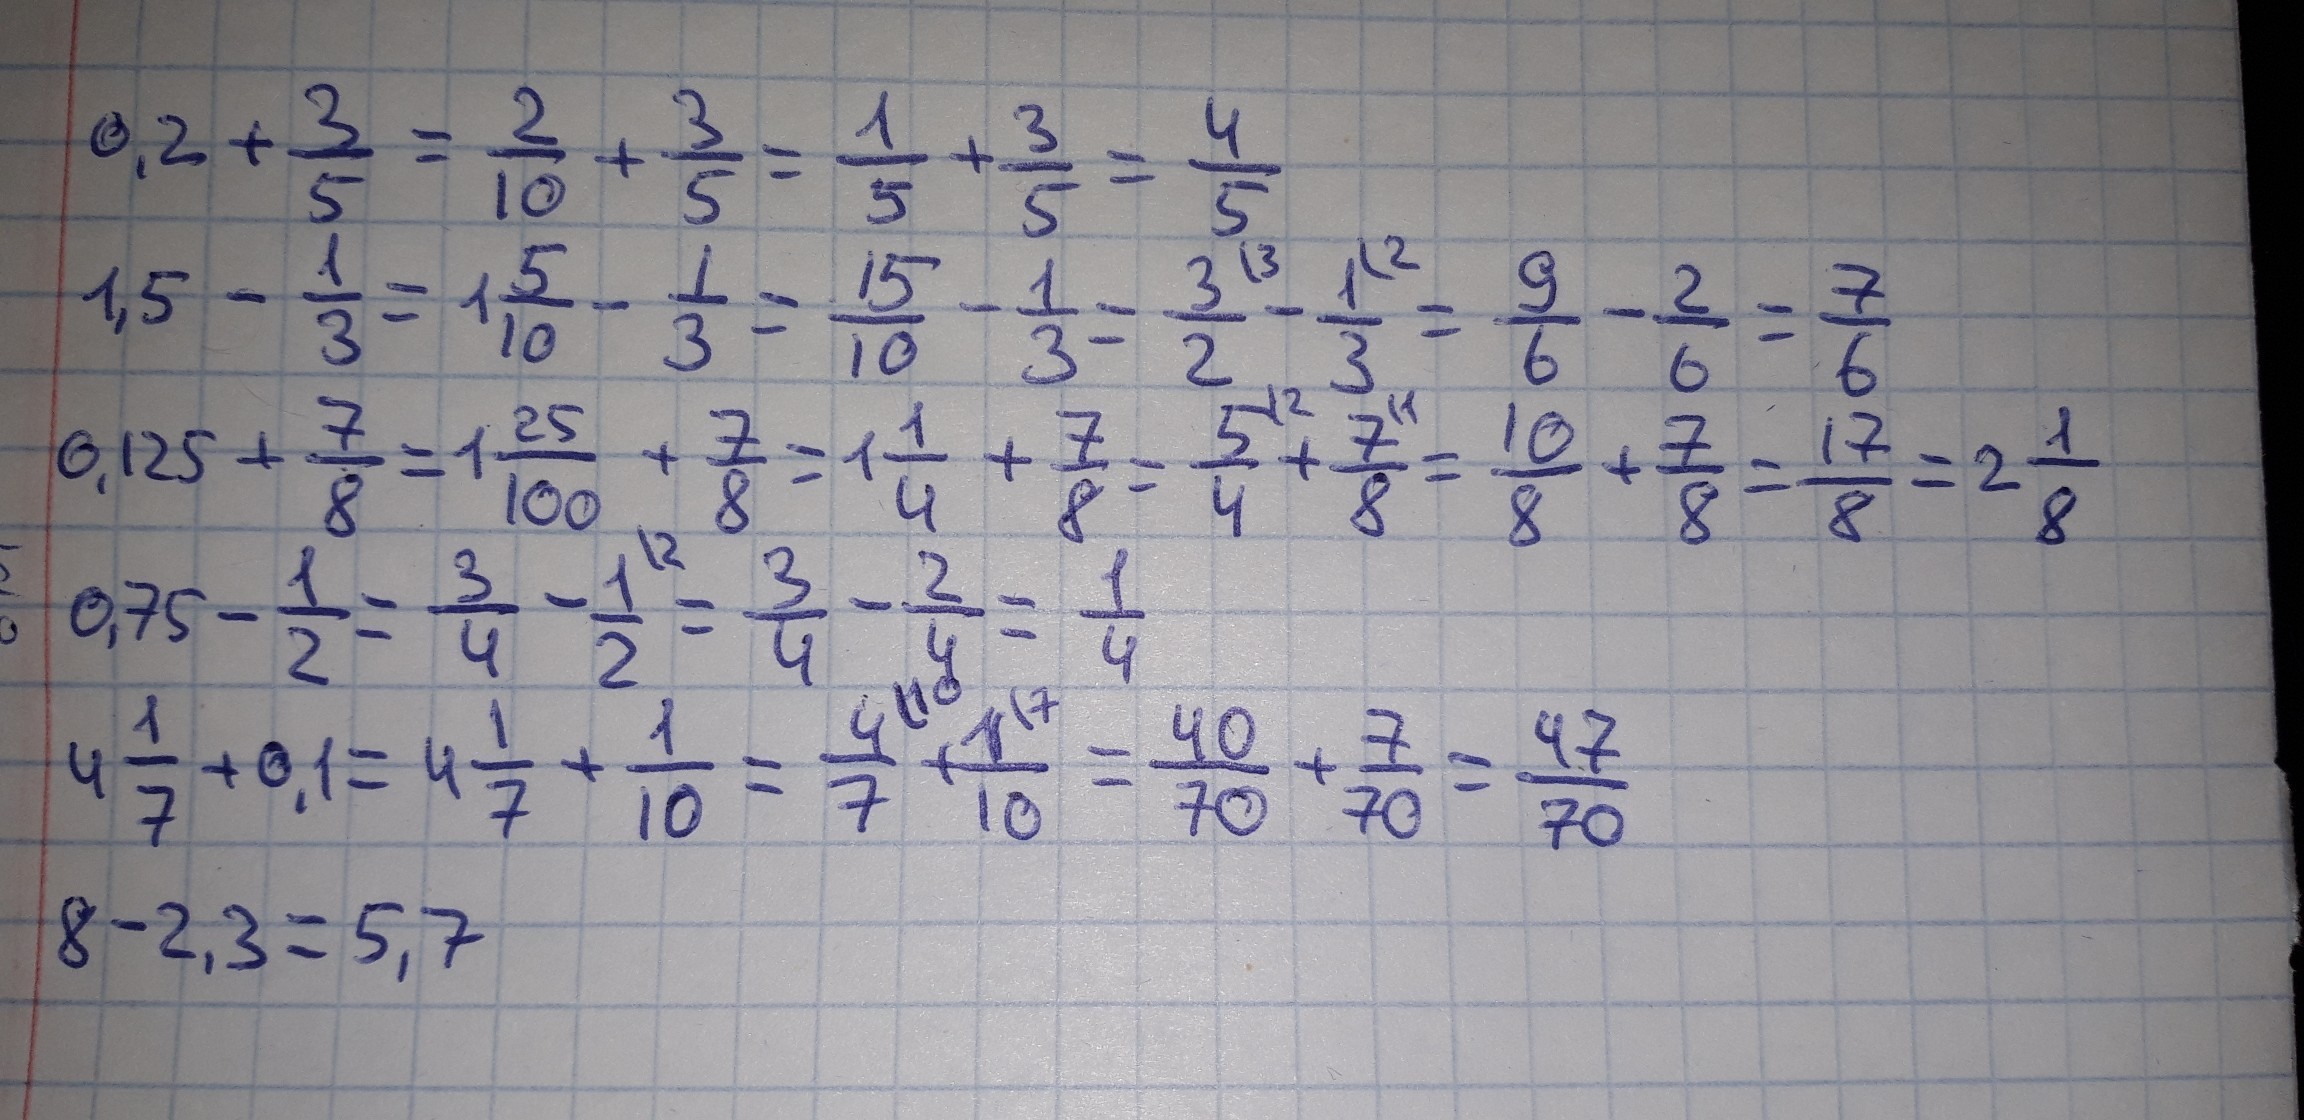 0,2 + 3/5 = 2/10 + 3/5 = 1/5 + 3/5 = 4/5
1,5 - 1/3 = 1 5/10 - 1/3 = 15/10 - 1/3 = 3\3/2 - 1\2/3 = 9/6 - 2/6 = 7/6
0,125 + 7/8 = 1 25/100 + 7/8 = 1 1/4 + 7/8 = 5\2/4 + 7\1/8 = 10/8 + 7/8 = 17/8 = 2 1/8
0,75 - 1/2 = 3/4 - 1\2/2 = 3/4 - 2/4 = 1/4
4 1/7 + 0,1 = 4 1/7 + 1/10 = 4\10/7 + 1\7/10 = 40/70 + 7/70 = 47/70
8 - 2,3 = 5,7